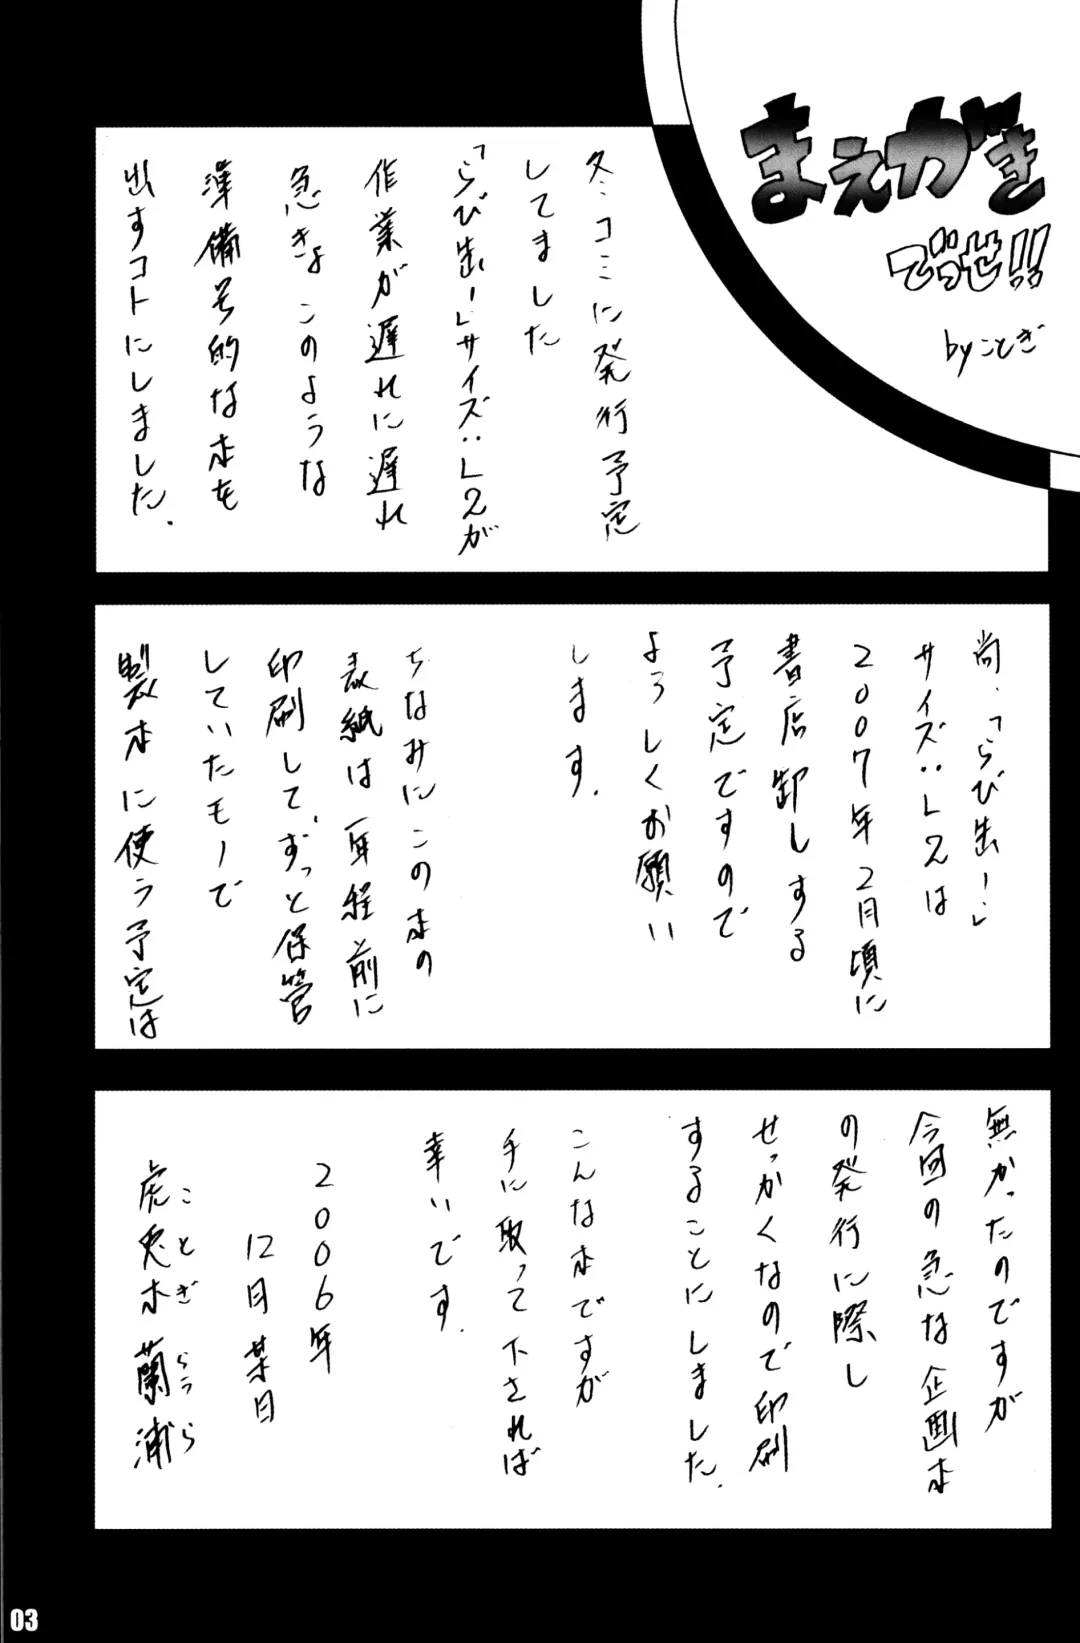 まえがき
でっせ!!
byことぎ
冬コミに発行予定
してました
「らび出!」サイズ:L2が
作業が遅れに遅れ
急きょこのような
準備号的な本を
出すコトにしました.
尚・「らび出!」
サイズ:L2は
2007年2月頃に
書店卸しする
予定ですので
よろしくお願い
します.
ちなみにこの本の
表紙は一年程前に
印刷して、ずっと保管
していたモノで
製本に使う予定は
無かったのですが
今回の急な企画本
の発行に際し
せっかくなので印刷
することにしました.
こんな本ですが
手に取って下されば
幸いです.
2006年
12月某日
虎兎木蘭浦
ことぎ らうら
03